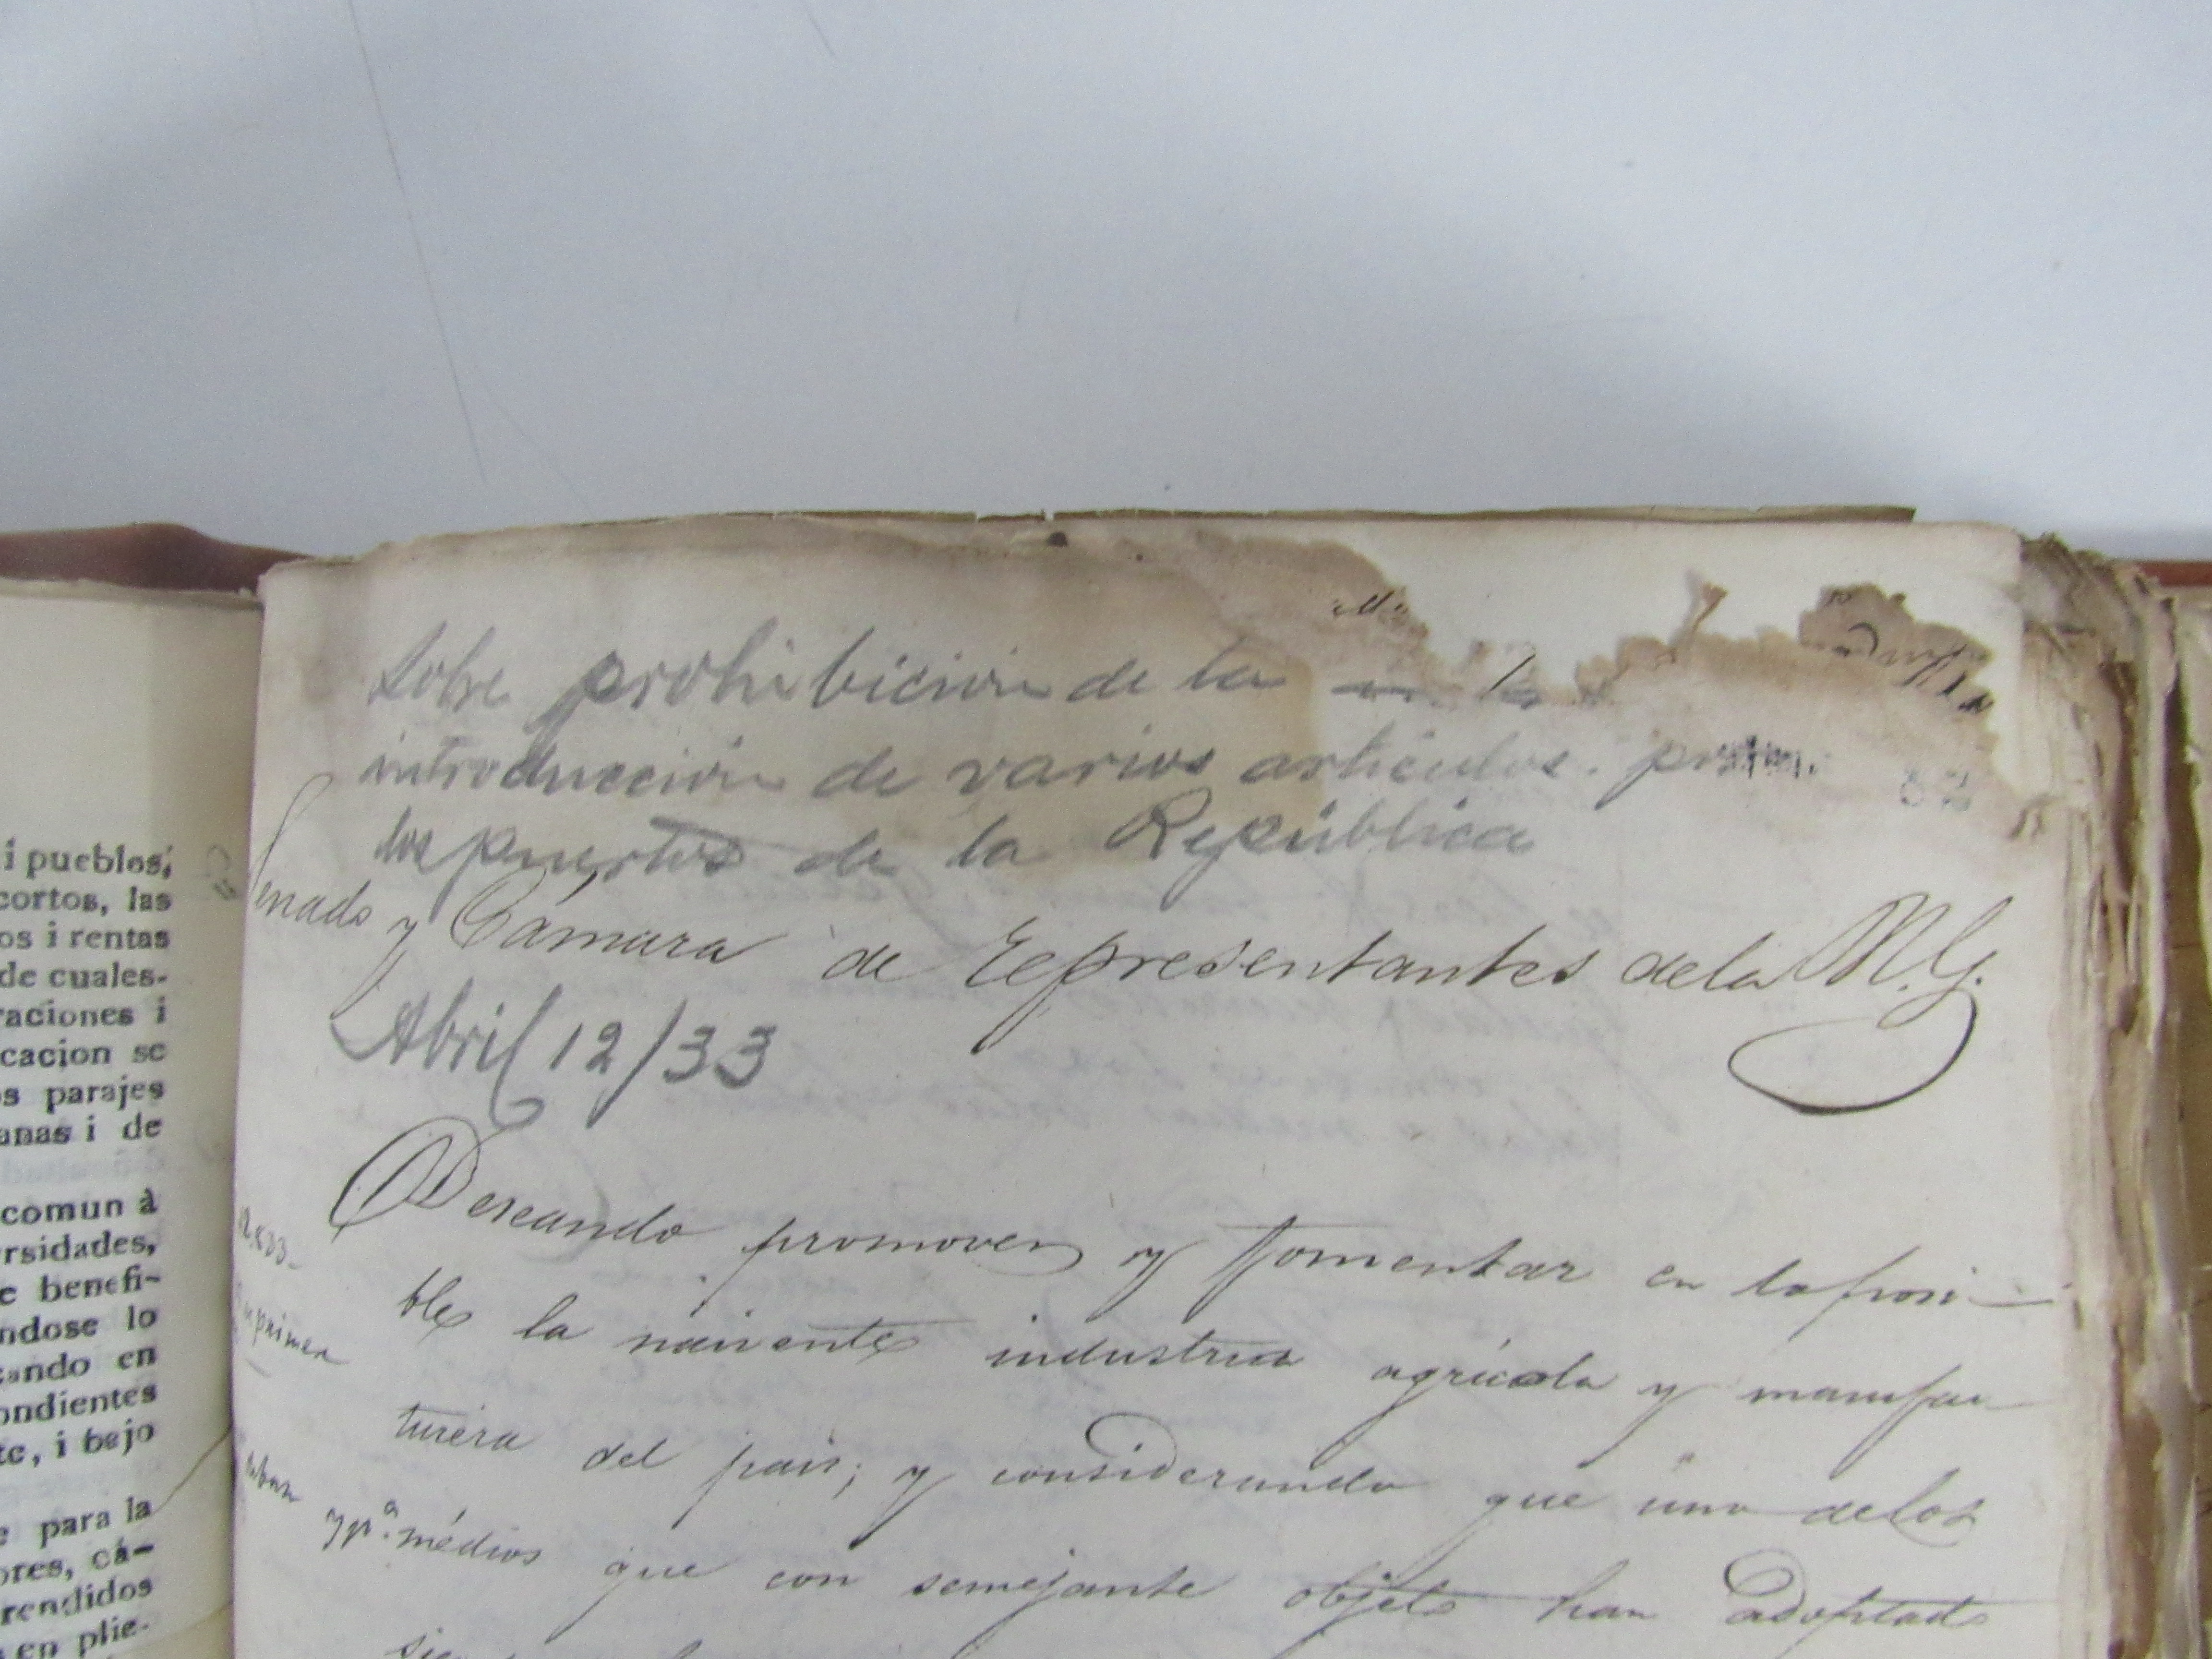 i pueblos,
cortos, las
os i rentas
de cuales-
raciones i
cacion se
os parajes
anas i de
comun à
rsidades,
e benefi-
ndose lo
cando en
ondientes
te, i bajo
e para la
ores, cá-
rendidos
en plie-
Sobre prohibición de la
introducción de varios artículos. por
los puertos de la República
Senado y Cámara de Representantes de la N. G.
Abril 12/33
Deseando promover y fomentar en lo posi-
ble la naciente industria agrícola y manufac
turera del pais; y considerando que uno de los
médios que con semejante objeto han adoptado